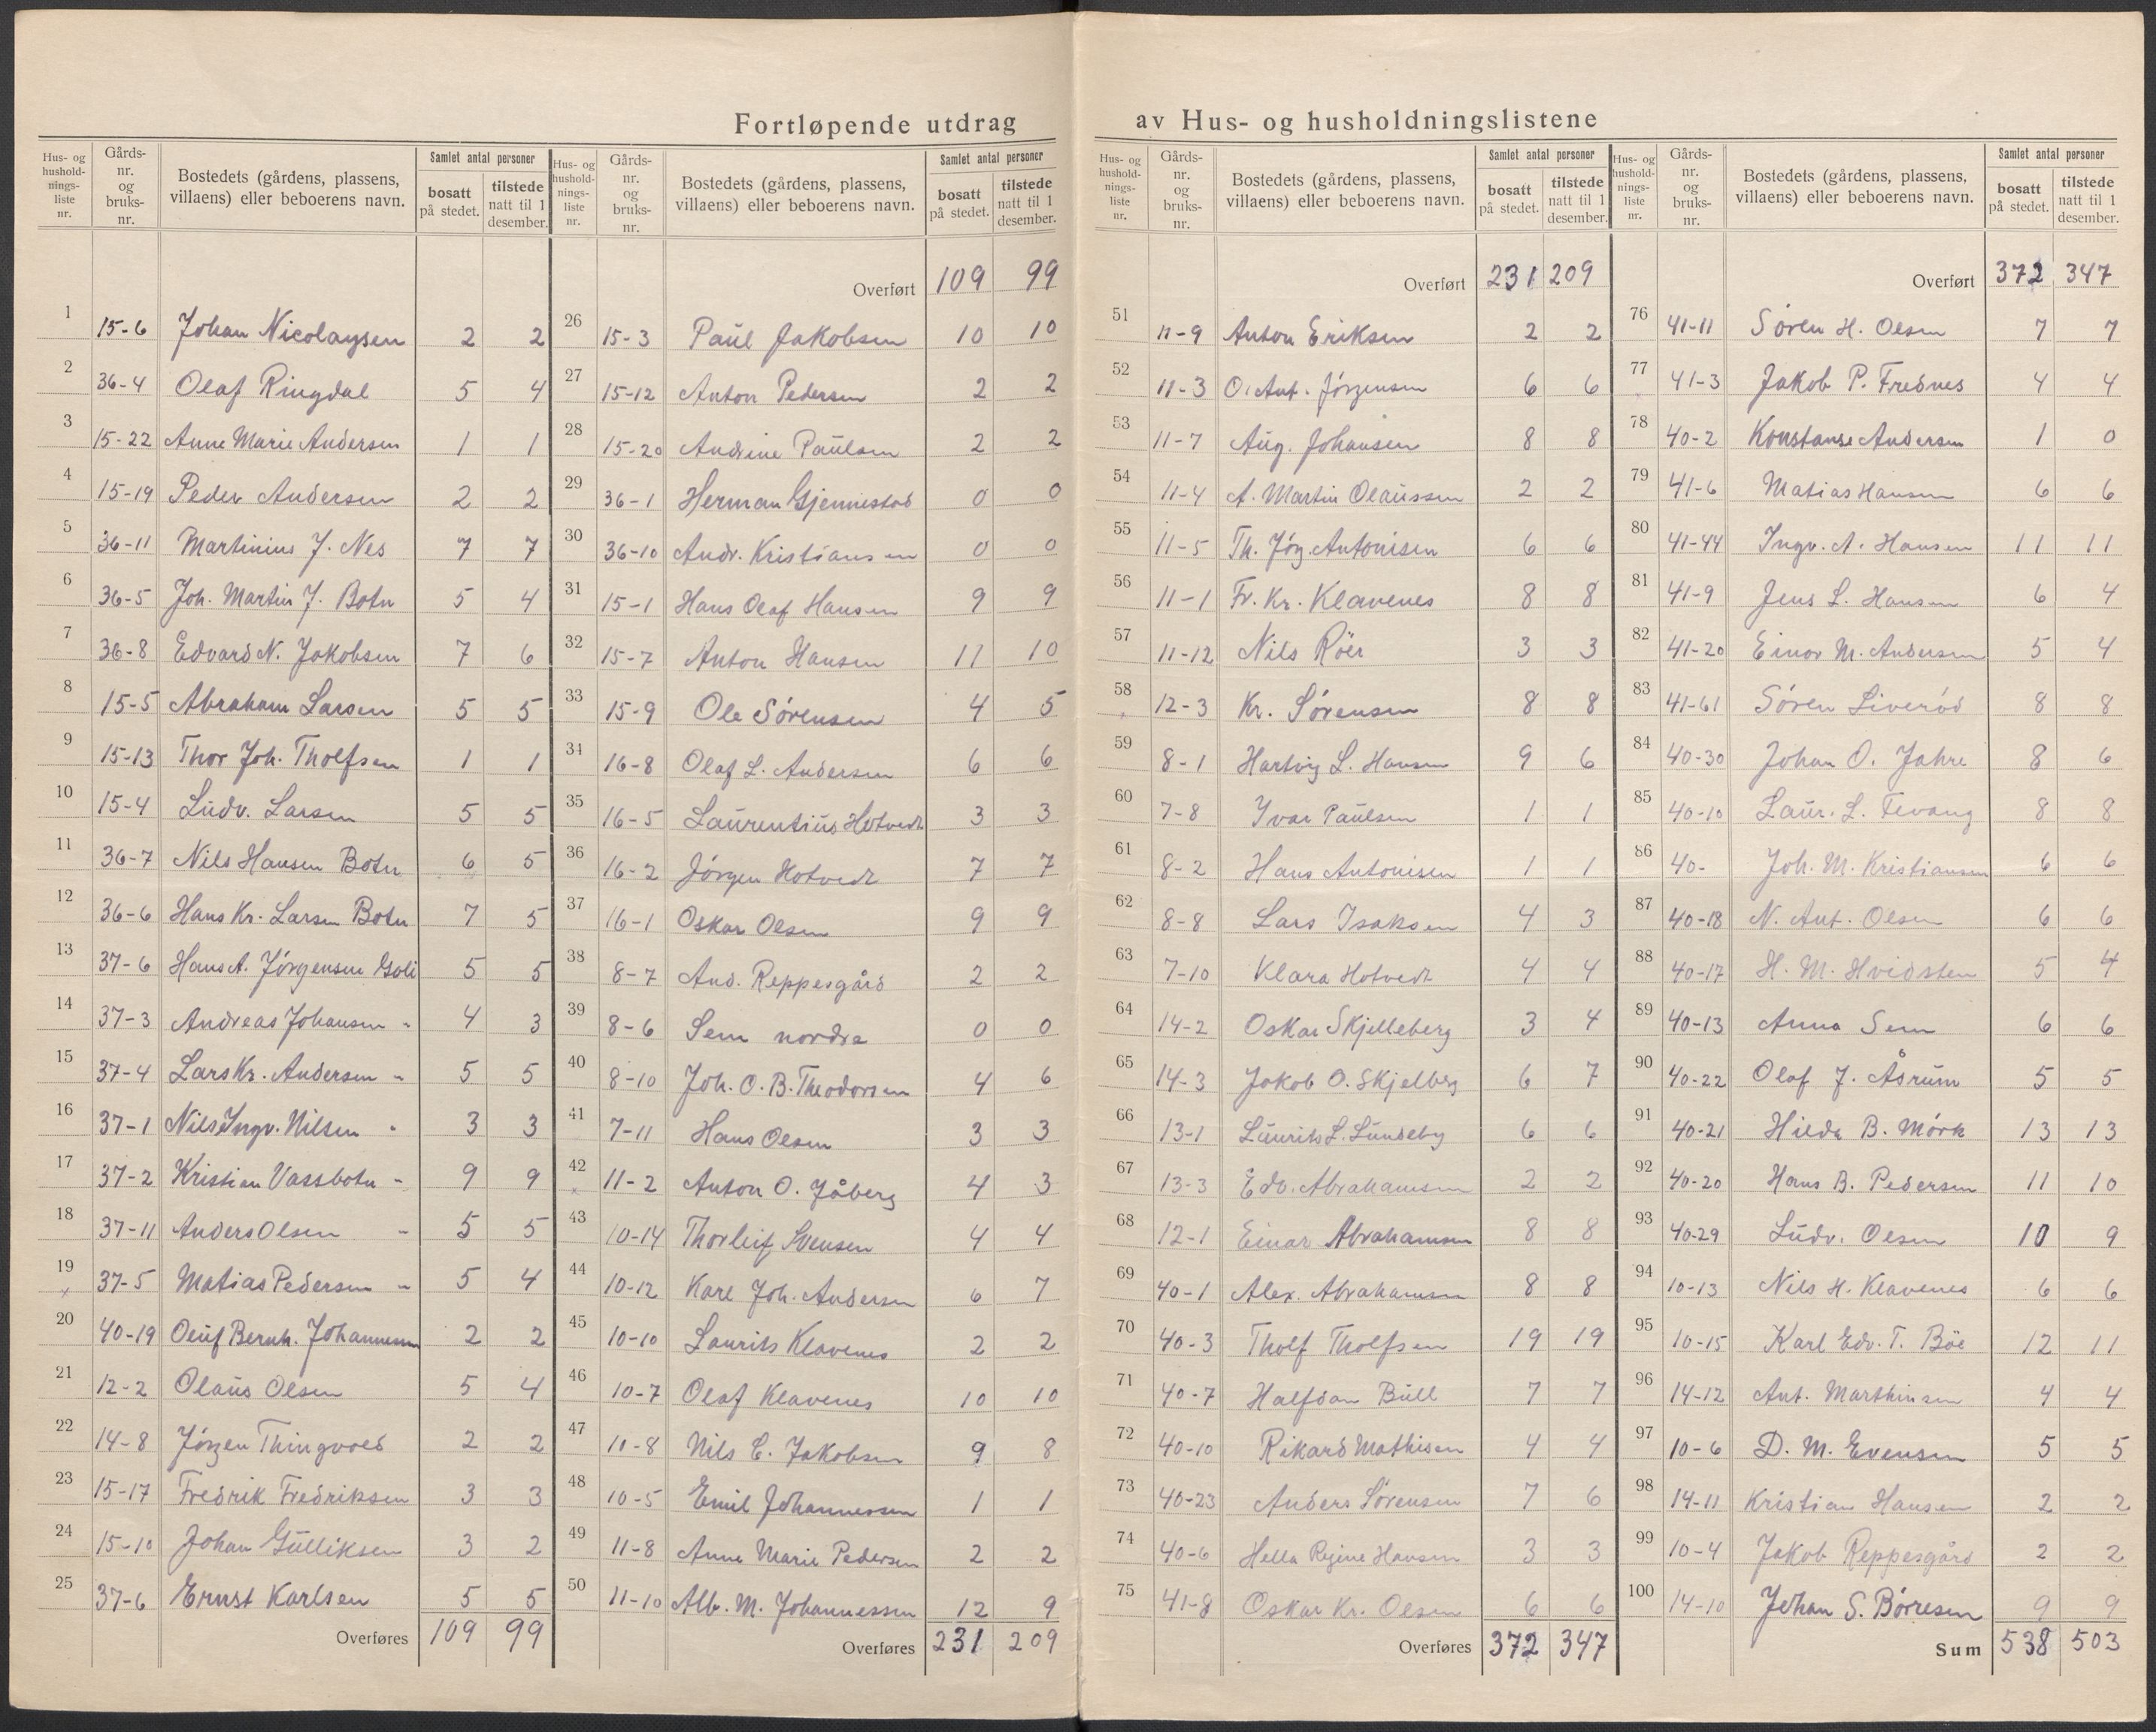 Fortløpende utdrag av Hus- og husholdningslistene
Hus- og husholdnings-liste nr. | Gårds-nr. og bruks-nr. | Bostedets (gårdens, plassens, villaens) eller beboerens navn. | Samlet antal personer bosatt på stedet. | tilstede natt til 1 desember.
1 15-6 Johan Nicolaysen 2 2
2 36-4 Olaf Ringdal 5 4
3 15-22 Anne Marie Andersen 1 1
4 15-19 Peder Andersen 2 2
5 36-11 Martinius J. Nes 7 7
6 36-5 Joh. Martin J. Botn 5 4
7 36-8 Edvard N. Jakobsen 7 6
8 15-5 Abraham Larsen 5 5
9 15-13 Thor Joh. Tholfsen 1 1
10 15-4 Ludv. Larsen 5 5
11 36-7 Nils Hansen Botn 6 5
12 36-6 Hans Kr. Larsen Botn 7 5
13 37-6 Hans A. Jörgensen Goli 5 5
14 37-3 Andreas Johansen - 4 3
15 37-4 Lars Kr. Andersen - 5 5
16 37-1 Nils Ingv. Nilsen - 3 3
17 37-2 Kristian Vassbotn - 9 9
18 37-11 Anders Olsen - 5 5
19 37-5 Matias Pedersen - 5 4
20 40-19 Oluf Bernh. Johannesen 2 2
21 12-2 Olaus Olsen 5 4
22 14-8 Jörgen Thingvold 2 2
23 15-17 Fredrik Fredriksen 3 3
24 15-10 Johan Gulliksen 3 2
25 37-6 Ernst Karlsen 5 5
Overføres 109 99
Hus- og husholdnings-liste nr. | Gårds-nr. og bruks-nr. | Bostedets (gårdens, plassens, villaens) eller beboerens navn. | Samlet antal personer bosatt på stedet. | tilstede natt til 1 desember.
Overført 109 99
26 15-3 Paul Jakobsen 10 10
27 15-12 Anton Pedersen 2 2
28 15-20 Andrine Paulsen 2 2
29 36-1 Herman Gjennestad 0 0
30 36-10 Andr. Kristiansen 0 0
31 15-1 Hans Olaf Hansen 9 9
32 15-7 Anton Hansen 11 10
33 15-9 Ole Sörensen 4 5
34 16-8 Olaf L. Andersen 6 6
35 16-5 Laurentius Hotvedt 3 3
36 16-2 Jörgen Hotvedt 7 7
37 16-1 Oskar Olsen 9 9
38 8-7 And. Reppesgård 2 2
39 8-6 Sem nordre 0 0
40 8-10 Joh. O. B. Theodorsen 4 6
41 7-11 Hans Olsen 3 3
42 11-2 Anton O. Jåberg 4 3
43 10-14 Thorleif Svensen 4 4
44 10-12 Karl Joh. Andersen 6 7
45 10-10 Laurits Klavenes 2 2
46 10-7 Olaf Klavenes 10 10
47 10-8 Nils C. Jakobsen 9 8
48 10-5 Emil Johannessen 1 1
49 11-8 Anne Marie Pedersen 2 2
50 11-10 Alb. M. Johannessen 12 9
Overføres 231 209
Hus- og husholdnings-liste nr. | Gårds-nr. og bruks-nr. | Bostedets (gårdens, plassens, villaens) eller beboerens navn. | Samlet antal personer bosatt på stedet. | tilstede natt til 1 desember.
Overført 231 209
51 11-9 Anton Eriksen 2 2
52 11-3 O. Ant. Jörgensen 6 6
53 11-7 Aug. Johansen 8 8
54 11-4 A. Martin Olaussen 2 2
55 11-5 Th. Jörg. Antonisen 6 6
56 11-1 Fr. Kr. Klavenes 8 8
57 11-12 Nils Röer 3 3
58 12-3 Kr. Sörensen 8 8
59 8-1 Hartvig L. Hansen 9 6
60 7-8 Ivar Paulsen 1 1
61 8-2 Hans Antonisen 1 1
62 8-8 Lars Isaksen 4 3
63 7-10 Klara Hotvedt 4 4
64 14-2 Oskar Skjelleberg 3 4
65 14-3 Jakob O. Skjelberg 6 7
66 13-1 Laurits L. Lundeby 6 6
67 13-3 Edv. Abrahamsen 2 2
68 12-1 Einar Abrahamsen 8 8
69 40-1 Alex. Abrahamsen 8 8
70 40-3 Tholf Tholfsen 19 19
71 40-7 Halfdan Bull 7 7
72 40-10 Rikard Mathisen 4 4
73 40-23 Anders Sörensen 7 6
74 40-6 Hella Regine Hansen 3 3
75 41-8 Oskar Kr. Olsen 6 6
Overføres 372 347
Hus- og husholdnings-liste nr. | Gårds-nr. og bruks-nr. | Bostedets (gårdens, plassens, villaens) eller beboerens navn. | Samlet antal personer bosatt på stedet. | tilstede natt til 1 desember.
Overført 372 347
76 41-11 Sören H. Olsen 7 7
77 41-3 Jakob P. Frednes 4 4
78 40-2 Konstanse Andersen 1 0
79 41-6 Matias Hansen 6 6
80 41-44 Ingv. A. Hansen 11 11
81 41-9 Jens L. Hansen 6 4
82 41-20 Einar M. Andersen 5 4
83 41-61 Sören Liveröd 8 8
84 40-30 Johan O. Jahre 8 6
85 40-10 Laur. L. Tevang 8 8
86 40- Joh. M. Kristiansen 6 6
87 40-18 N. Ant. Olsen 6 6
88 40-17 H. M. Hvidsten 5 4
89 40-13 Anna Sem 6 6
90 40-22 Olaf J. Åsrum 5 5
91 40-21 Hilda B. Mörk 13 13
92 40-20 Hans B. Pedersen 11 10
93 40-29 Ludv. Olsen 10 9
94 10-13 Nils H. Klavenes 6 6
95 10-15 Karl Edv. T. Böe 12 11
96 14-12 Ant. Marthinsen 4 4
97 10-6 D. M. Evensen 5 5
98 14-11 Kristian Hansen 2 2
99 10-4 Jakob Reppesgård 2 2
100 14-10 Johan S. Börresen 9 9
Sum 538 503